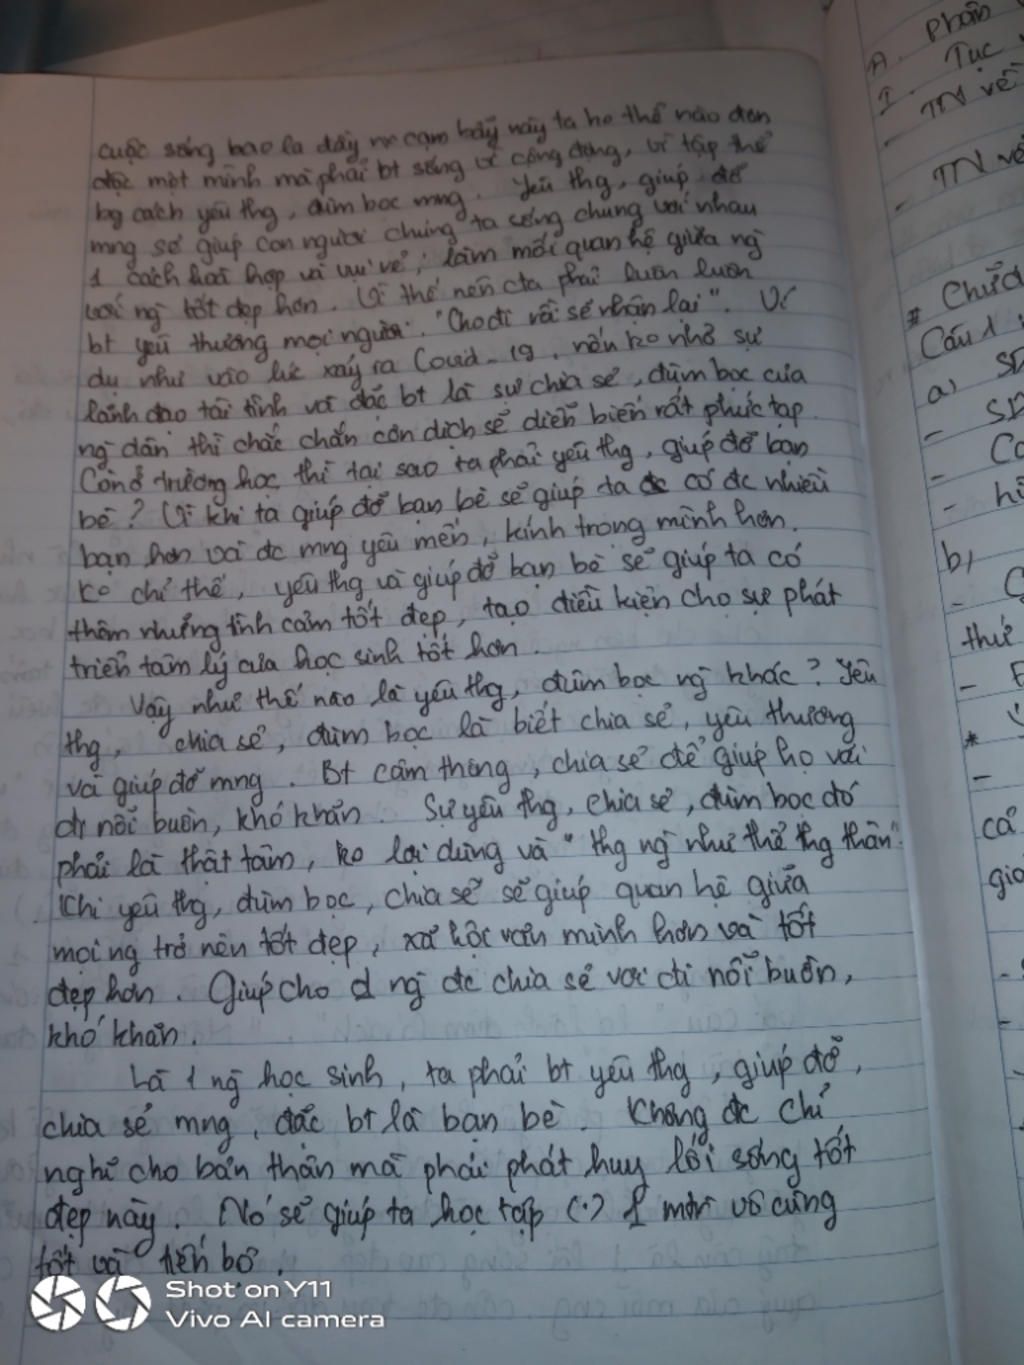 cuộc sống bao la đầy cạm bẫy này ta ko thể nào đơn
độc một mình mà phải bt sống vì cộng đồng, vì tập thể
bg cách yêu thg, đùm bọc mng. Yêu thg, giúp đỡ
mng sẽ giúp con người chúng ta sống chung với nhau
1 cách hoà hợp và vui vẻ, làm mối quan hệ giữa ng
với ng tốt đẹp hơn. Vì thế nên cta phải luôn luôn
bt yêu thương mọi người. "Cho đi rồi sẽ nhận lại". Ví
dụ như vào lúc xảy ra Covid-19, nếu ko nhờ sự
lãnh đạo tài tình và đặc bt là sự chia sẻ, đùm bọc của
ng dân thì chắc chắn cơn dịch sẽ diễn biến rất phức tạp.
Còn ở trường học thì tại sao ta phải yêu thg, giúp đỡ bạn
bè? Vì khi ta giúp đỡ bạn bè sẽ giúp ta có đc nhiều
bạn hơn và đc mng yêu mến, kính trọng mình hơn.
Ko chỉ thế, yêu thg và giúp đỡ bạn bè sẽ giúp ta có
thêm những tình cảm tốt đẹp, tạo điều kiện cho sự phát
triển tâm lý của học sinh tốt hơn.
Vậy như thế nào là yêu thg, đùm bọc ng khác? Yêu
thg, chia sẻ, đùm bọc là biết chia sẻ, yêu thương
và giúp đỡ mng. Bt cảm thông, chia sẻ để giúp họ vơi
đi nỗi buồn, khó khăn. Sự yêu thg, chia sẻ, đùm bọc đó
phải là thật tâm, ko lợi dụng và "thg ng như thể thg thân".
Khi yêu thg, đùm bọc, chia sẻ sẽ giúp quan hệ giữa
mọi ng trở nên tốt đẹp, xã hội văn minh hơn và tốt
đẹp hơn. Giúp cho ng đc chia sẻ vơi đi nỗi buồn,
khó khăn.
Là 1 ng học sinh, ta phải bt yêu thg, giúp đỡ,
chia sẻ mng, đặc bt là bạn bè. Không đc chỉ
nghĩ cho bản thân mà phải phát huy lối sống tốt
đẹp này. Nó sẽ giúp ta học tập (.) 1 mtr vô cùng
tốt và tiến bộ.
A. Phần
I. Tục
- TN về
- TN về
# Chữa
Câu 1
a)
b)
thứ
cả
Shot on Y11
Vivo AI camera